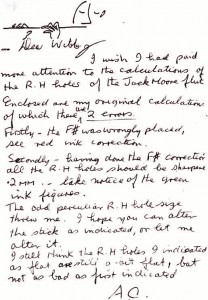 Dear Webby
I wish I had paid
more attention to the calculations of
the R.H holes of the Jack Moore flut
Enclosed are my original calculation
of which there 2 errors.
Firstly - the F# was wrongly placed,
see red ink correction.
Secondly - having done the F# correction
all the R.H holes should be sharpene
.2 mm .. take notice of the green
ink figures.
The odd peculiar R.H hole size
threw me. I hope you can alter
the stick as indicated, or let me
alter it.
I still think the R.H holes I indicated
as flat are still a-bit flat, but
not as bad as first indicated
A C.